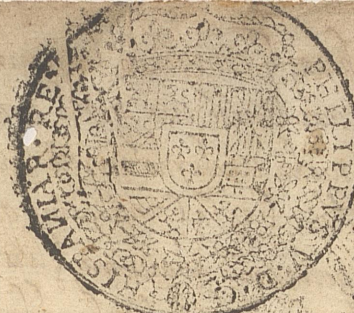 PHILIPPUS V. D. G. HISPANIAR. REX